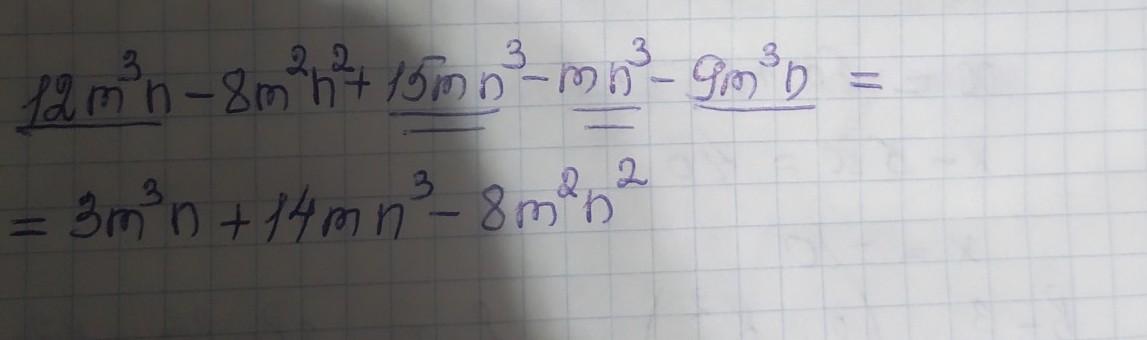 12m³n - 8m²n² + 15mn³ - mn³ - 9m³n =
= 3m³n + 14mn³ - 8m²n²